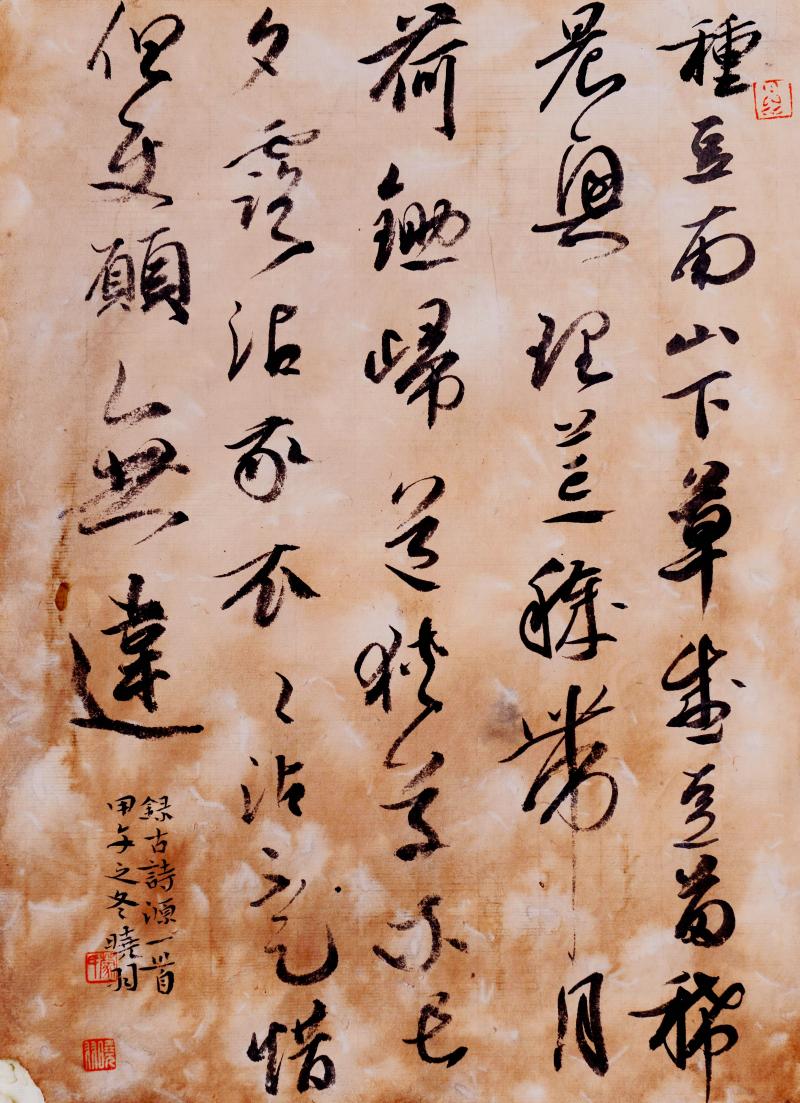 種豆南山下草盛豆苗稀
晨興理荒穢帶月
荷鋤歸道狹草木長
夕露沾我衣〻沾不足惜
但使願無違
錄古詩源一首
甲午之冬曉羽